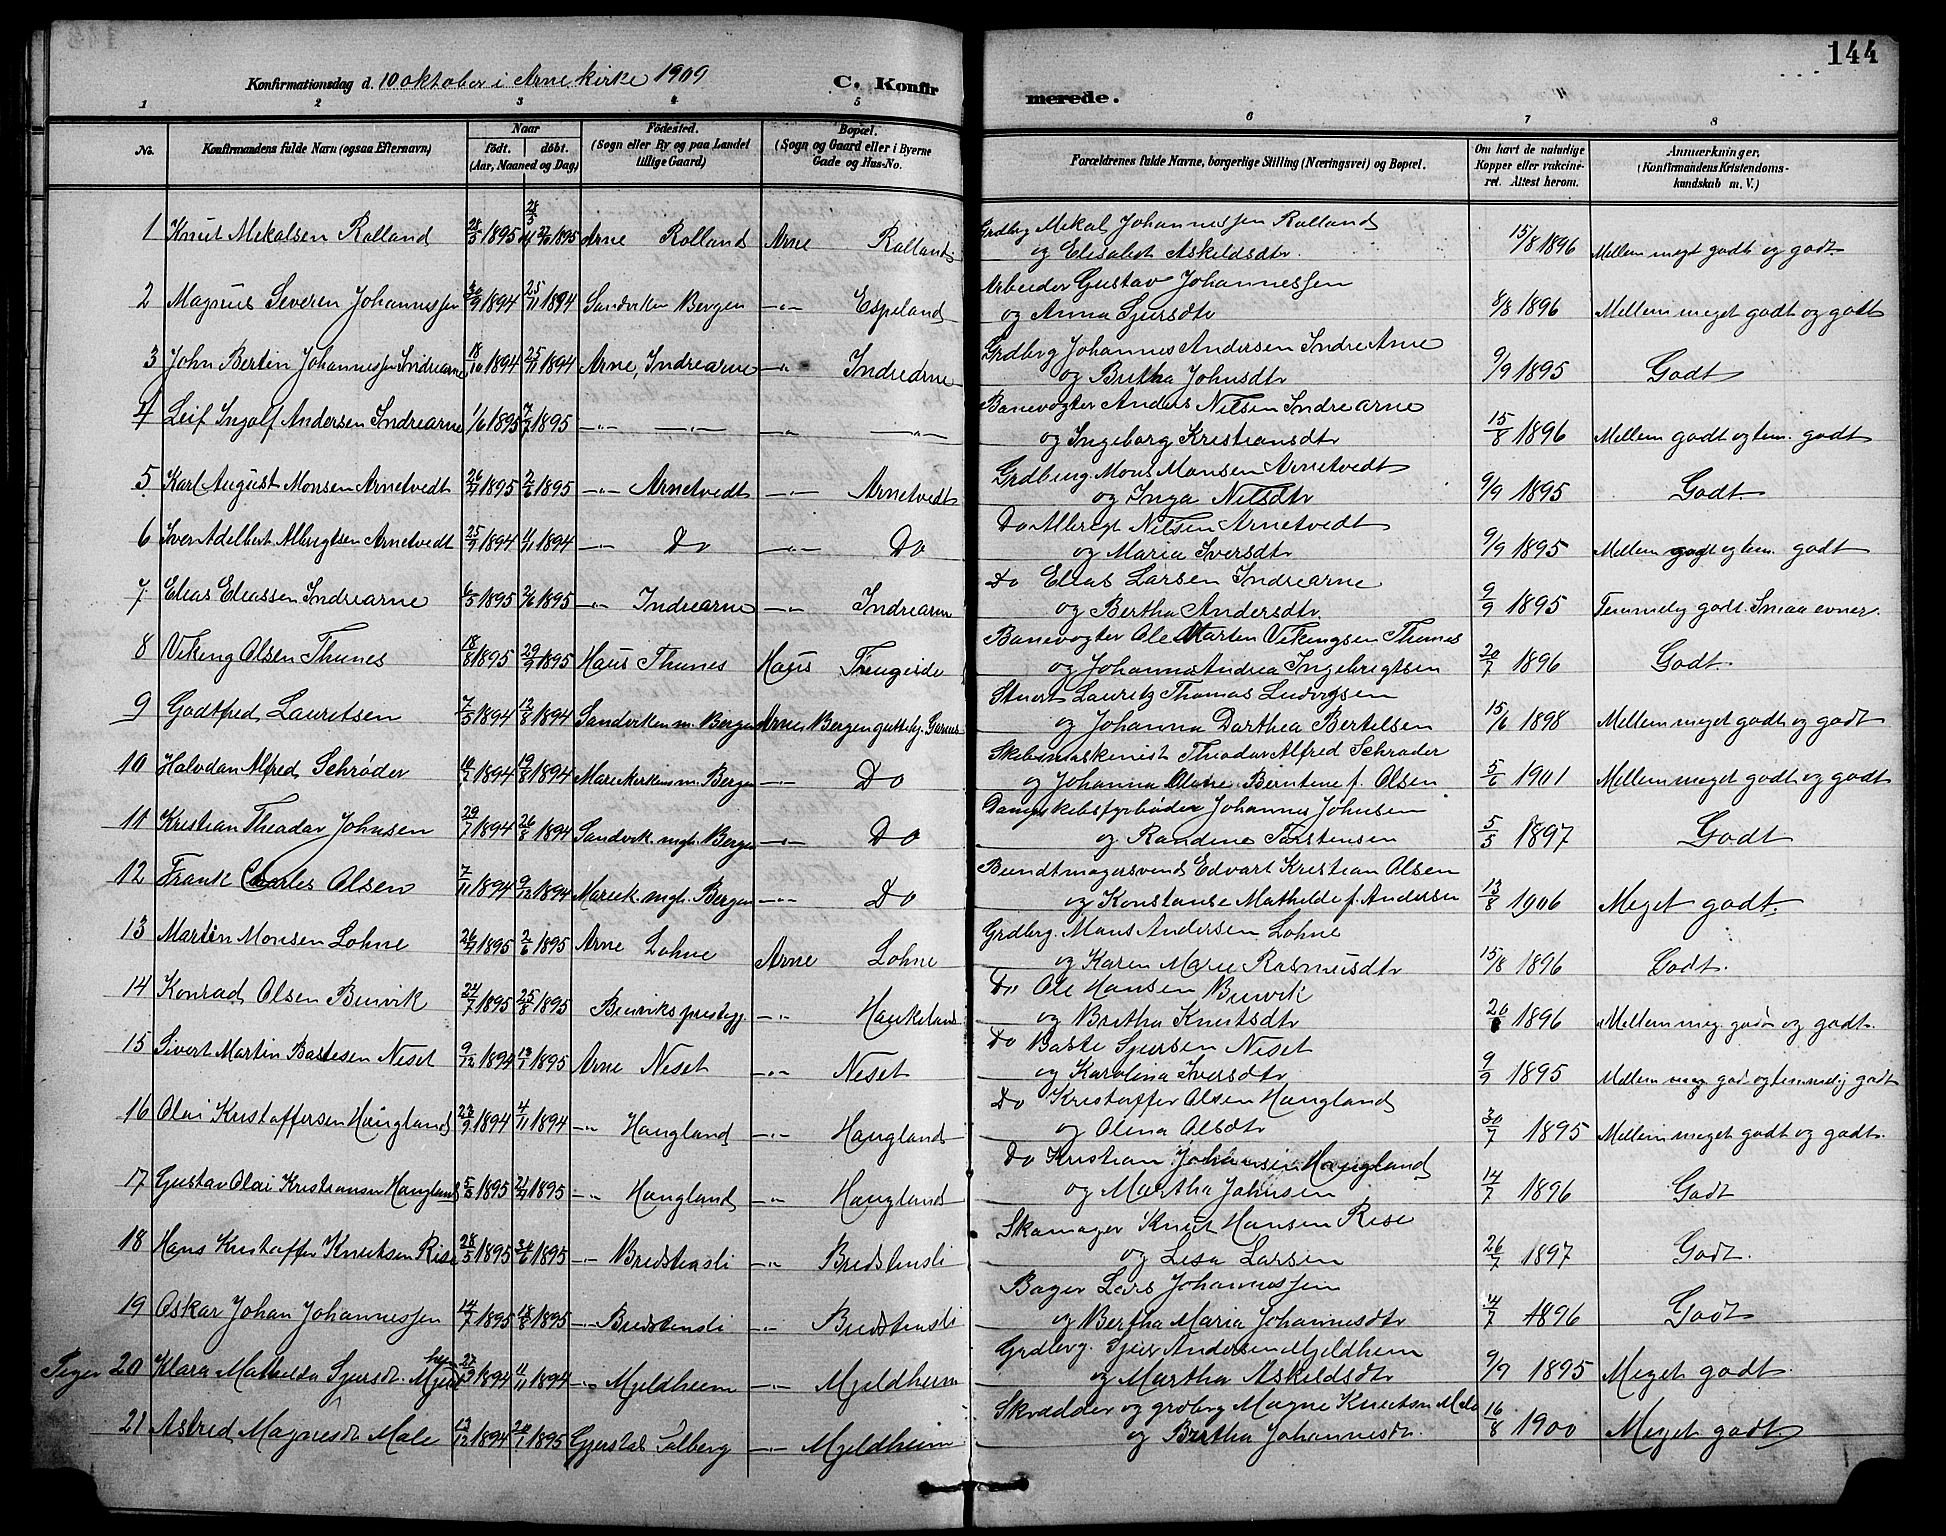 144
Konfirmationsdag d. 10 oktober i Arne kirke 1909 C. Konfir merede.
1 2 3 4 5 6 7 8
No. Konfirmandens fulde Navn (ogsaa Efternavn) Naar født. døbt. (Aar, Maaned og Dag) Fødested. (Sogn eller By og paa Landet tillige Gaard) Bopæl. (Sogn og Gaard eller i Byerne Gade og Hus-No. Forældrenes fulde Navne, borgerlige Stilling (Næringsvei) og Bopæl. Om havt de naturlige Kopper eller vakcineret. Attest herom. Anmærkninger, (Konfirmandens Kristendomskundskab m. V.)
1 Knut Mikalsen Rolland 1895 1895 Arne Rolland Arne Rolland Grdbrg Mikal Johannessen Rolland og Elisabet Askildsdtr 15/8 1896 Mellem meget godt og godt.
2 Magnus Severin Johannessen 30/9 1894 25/11 1894 Sandviken Bergen -"- Espeland Arbeider Gustav Johannessen og Anna Sjursdtr 8/8 1896 Mellem meget godt og godt
3 John Bertin Johannessen Indrearne 18/10 1894 25/11 1894 Arne, Indrearne -"- Indrearne Grdbrg Johannes Andersen Indre Arne og Britha Johnsdtr 9/9 1895 Godt
4 Leif Ingolf Andersen Indrearne 1/6 1895 7/7 1895 -"- -"- -"- -"- Banevogter Anders Nilsen Indrearne og Ingeborg Kristiansdtr 15/8 1896 Mellem godt og tem. godt
5. Karl August Monsen Arnetvedt 26/4 1895 2/6 1895 -"- Arnetvedt -"- Arnetvedt Grdbrug Mons Monsen Arnetvedt og Inga Nilsdtr 9/9 1895 Godt
6 Iver Adelbert Albrigtsen Arnetvedt 25/9 1894 4/11 1894 -"- Do -"- Do Do Albrigt Nilsen Arnetvedt og Maria Iversdtr 9/9 1895 Mellem godt og tem. godt
7 Elias Eliassen Indrearne 6/5 1895 2/6 1895 -"- Indrearne -"- Indrearne Do Elias Larsen Indrearne og Bertha Andersdtr 9/9 1895 Temmelig godt. Smaa evner.
8 Viking Olsen Thunes 18/8 1895 29/9 1895 Haus Thunes Haus Banevogter Ole Martin Vikingsen Thunes og Johanna Andrea Ingebrigtsen 20/7 1896 Godt.
9 Godtfred Lauritsen 7/5 1894 12/8 1894 Sandviken m. Bergen Arne Bergen Garnes Stuert Lauritz Thomas Ludvigsen og Johanna Dorthea Bertelsen 15/6 1898 Mellem meget godt og godt
10 Halvdan Alfred Schrøder 1894 19/8 1894 Mariekirken m. Bergen -"- Do Skibsmaskinist Theodor Alfred Schrøder og Johanna Berntine f. Olsen 5/6 1901 Mellem meget godt og godt
11 Kristian Theodor Johnsen 29/7 1894 26/8 1894 Sandvik. mgh. Bergen -"- Do Dampskibsfyrbøder Johannes Johnsen og Randine Torstensen 5/5 1897 Godt
12 Frank Charles Olsen 7/11 1894 9/12 1894 Mariek. mgh. Bergen -"- Do Bundtmagersvend Edvart Kristian Olsen og Konstanse Mathilde f. Andersen 13/8 1906 Meget godt.
13 Martin Monsen Lohne 26/4 1895 2/6 1895 Arne Lohne Arne Lohne Grdbrg. Mons Andersen Lohne og Karen Marie Rasmusdtr 15/8 1896 Godt.
14 Konrad Olsen Bruvik 24/7 1895 25/8 1895 Bruviks prestegj. -"- Haukeland Do Ole Hansen Bruvik og Britha Knutsdtr 1896 Mellem meg. godt og godt.
15 Sivert Martin Bastesen Neset 9/12 1894 13/1 1895 Arne Neset -"- Neset Do Baste Sjursen Neset og Karolina Iversdtr 9/9 1895 Mellem meg god. og temmelig godt
16 Olai Kristoffersen Haugland 23/9 1894 4/11 1894 -"- Haugland -"- Haugland Do Kristoffer Olsen Haugland og Olina Olsdtr 30/7 1895 Mellem meget godt og godt.
17 Gustav Olai Kristiansen Haugland 5/3 1895 21/4 1895 -"- Haugland -"- Haugland Do Kristian Johansen Haugland og Martha Johnsen 14/7 1896 Godt
18 Hans Kristoffer Knutsen Rise 28/5 1895 1895 -"- Bredstensli -"- Bredstensli Skomager Knut Hansen Rise og Lisa Larsen 26/7 1897 Godt.
19 Oskar Johan Johannessen 14/7 1895 18/8 1895 -"- Bredstensli -"- Bredstensli Bager Lars Johannessen og Bertha Maria Johannesdtr 4/7 1896 Godt
Piger 20 Klara Mathilda Sjursdt. Mjeldheim 27/9 1894 4/11 1894 -"- Mjeldheim -"- Mjeldheim Grdbrg. Sjur Andersen Mjeldheim og Martha Askildsdtr 9/9 1895 Meget godt.
21 Astrid Magnesdt Male 13/12 1894 20/1 1895 Gjerstad -"- Mjeldheim Skrædder og grdbrg Magne Knutsen Male og Britha Johannesdt. 16/8 1900 Meget godt.